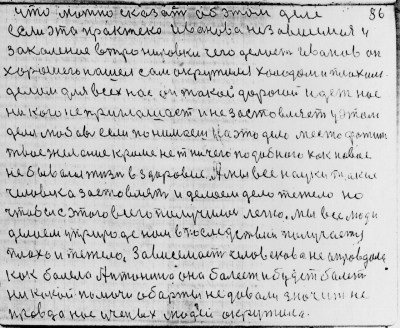 что можно сказат об этом деле 86
если эта практека Иванова независимая у
закаление в тренировки чего делает Иванов он
хорошего нашел сам окружил холодом и плохим
делим для всех нас он такой дорогой идет нас
никого не приглашает и не заставляет у этом
деле любой если понимаеш на это дело место
твое желание кроме нет ничего подобного как новое
небывалая жизн в здоровие. А мы все науки такие
человека заставлять и делаем дело тежело но
чтобы с этого всего получилос легко. мы все люди
делаем у природе нам в последствии получается
плохо и тежело. Зависемаст человека не оправдала
как балела Антонина она балеет и будет балет
никакой помочи обарты не давали значит не
правда нас ученых людей окружила.